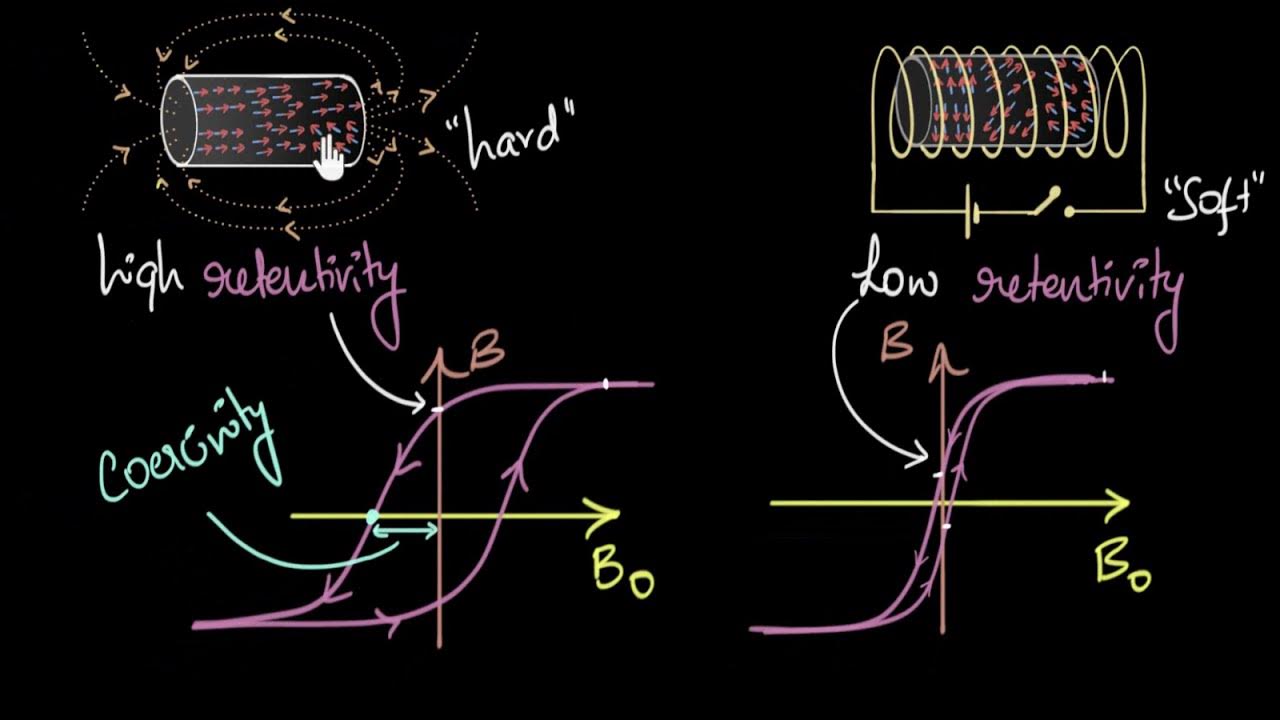 "hard"
"Soft"
high retentivity
Low retentivity
B
B
Coercivity
B0
B0